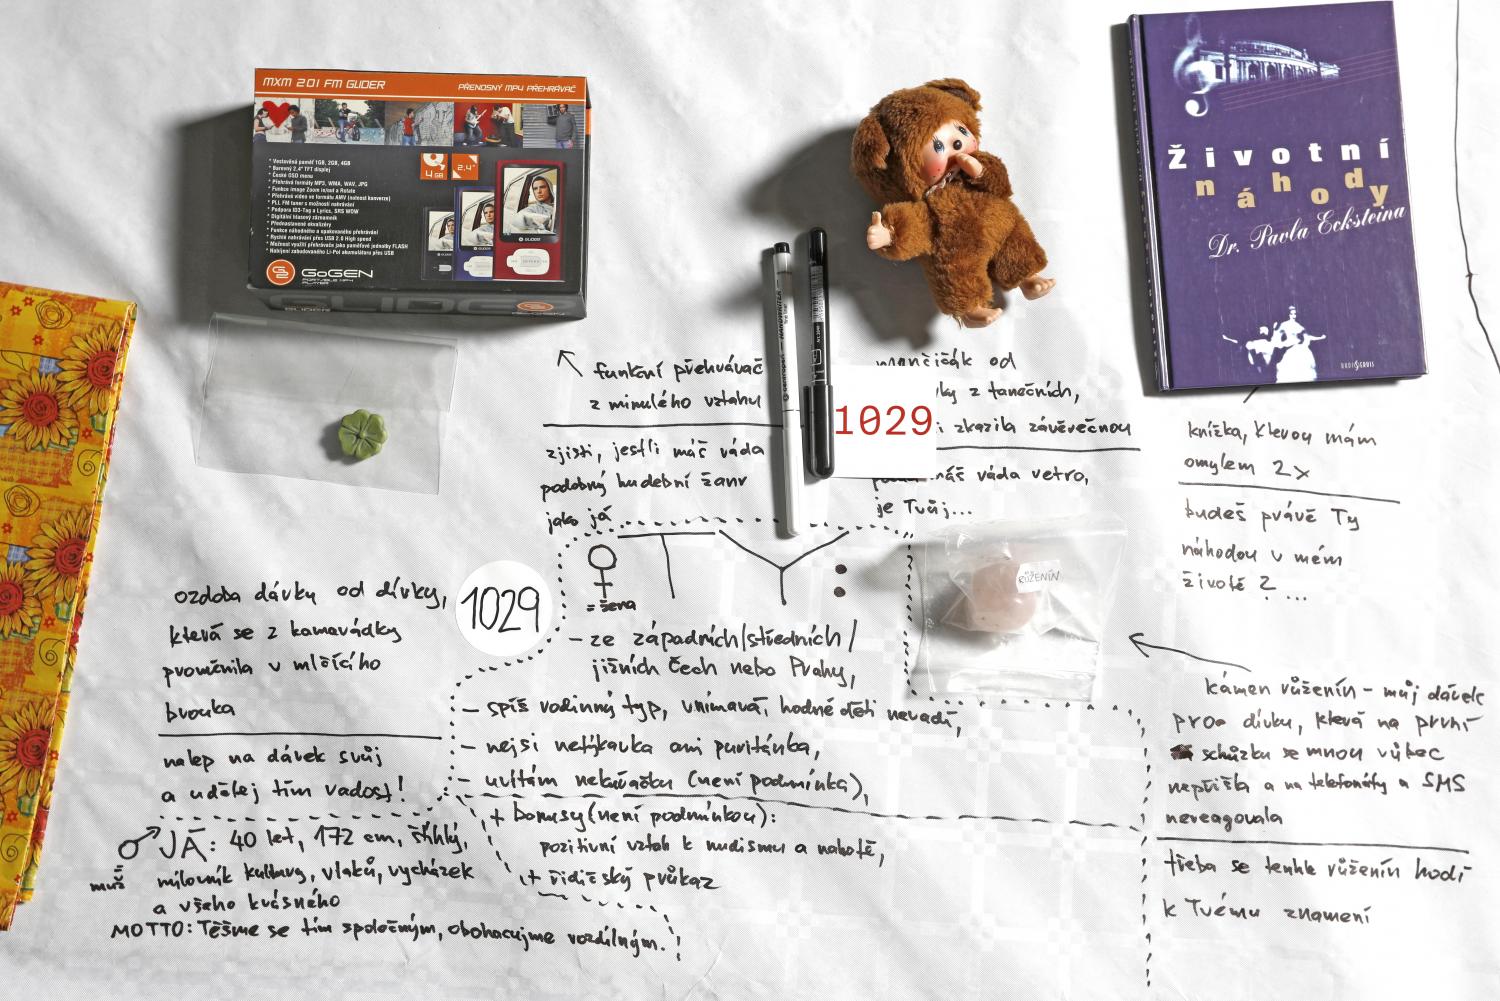 MXM 201 FM GLIDER
PŘENOSNÝ MP4 PŘEHRÁVAČ
* Vestavěná paměť 1GB, 2GB, 4GB
* Barevný 2.4" TFT displej
* České OSD menu
* Přehrává formáty MP3, WMA, WAV, JPG
* Funkce Image Zoom in/out a Rotate
* Přehrává video ve formátu AMV (nutnost konverze)
* PLL FM tuner s možností nahrávání
* Podpora ID3-Tag a Lyrics, SRS WOW
* Digitální hlasový záznamník
* Přednastavené ekvalizéry
* Funkce náhodného a opakovaného přehrávání
* Rychlé nahrávání přes USB 2.0 High speed
* Možnost využití přehrávače jako paměťové jednotky FLASH
* Nabíjení zabudovaného Li-Pol akumulátoru přes USB
4 GB
2.4"
GLIDER
GoGEN
PORTABLE MP4
PLAYER
Životní
náhody
Dr. Pavla Ecksteina
funkční přehrávač
z minulého vztahu
zjisti, jestli máš ráda
podobný hudební žánr
jako já
mančičák od
z tanečních,
zkazila závěrečnou
máš ráda retro,
je Tvůj...
1029
knížka, kterou mám
omylem 2x
budeš právě Ty
náhodou v mém
životě ? ...
ozdoba dárku od dívky,
která se z kamarádky
proměnila v mlčícího
brouka
nalep na dárek svůj
a udělej tím radost!
1029
= žena
TY:
- ze západních/středních/
jižních Čech nebo Prahy,
- spíš rodinný typ, vnímavá, hodné děti nevadí,
- nejsi netýkavka ani puritánka,
- uvítám nekuřačku (není podmínka),
+ bonusy (není podmínkou):
pozitivní vztah k nudismu a nahotě,
+ řidičský průkaz
RŮŽENÍN
kámen růženín - můj dárek
pro dívku, která na první
schůzku se mnou vůbec
nepřišla a na telefonáty a SMS
nereagovala
třeba se tenhle růženín hodí
k Tvému znamení
muž
JÁ: 40 let, 172 cm, štíhlý,
milovník kultury, vlaků, vycházek
a všeho krásného
MOTTO: Těšme se tím společným, obohacujme rozdílným.